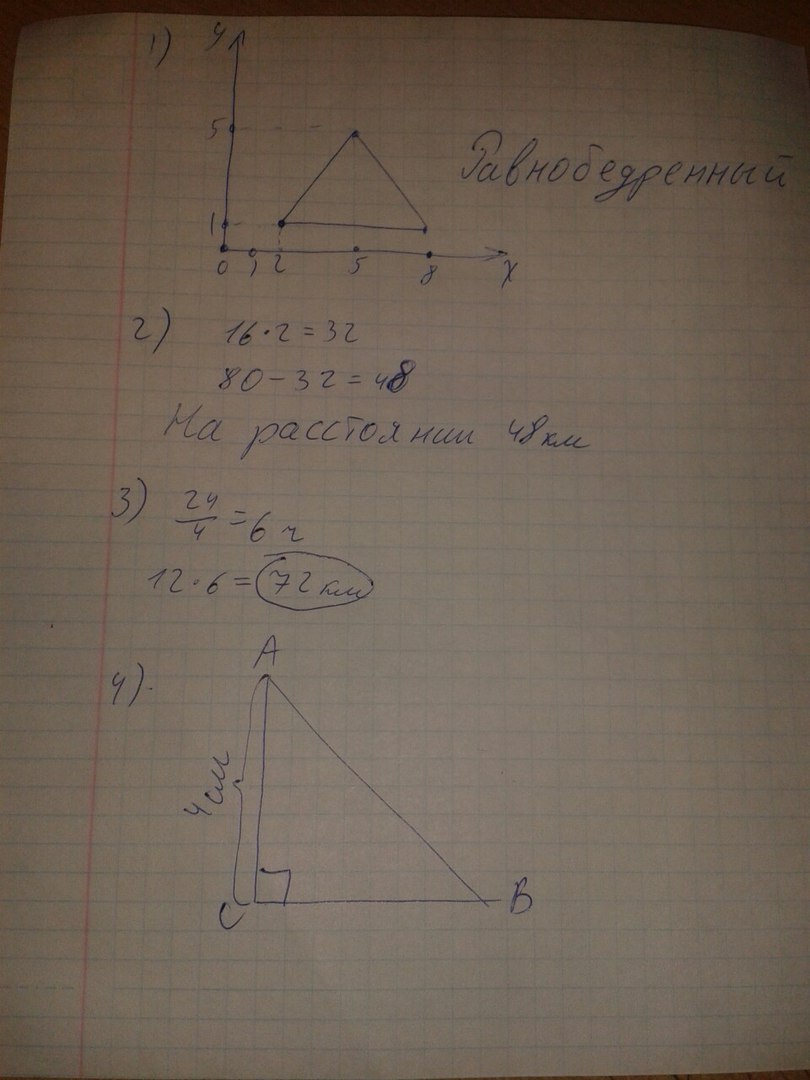 1)
y
5
1
0 1 2 5 8 x
Равнобедренный
2) 16·2=32
80-32=48
На расстоянии 48км
3) 24/4=6ч
12·6=72км
4).
A
4см
C
B